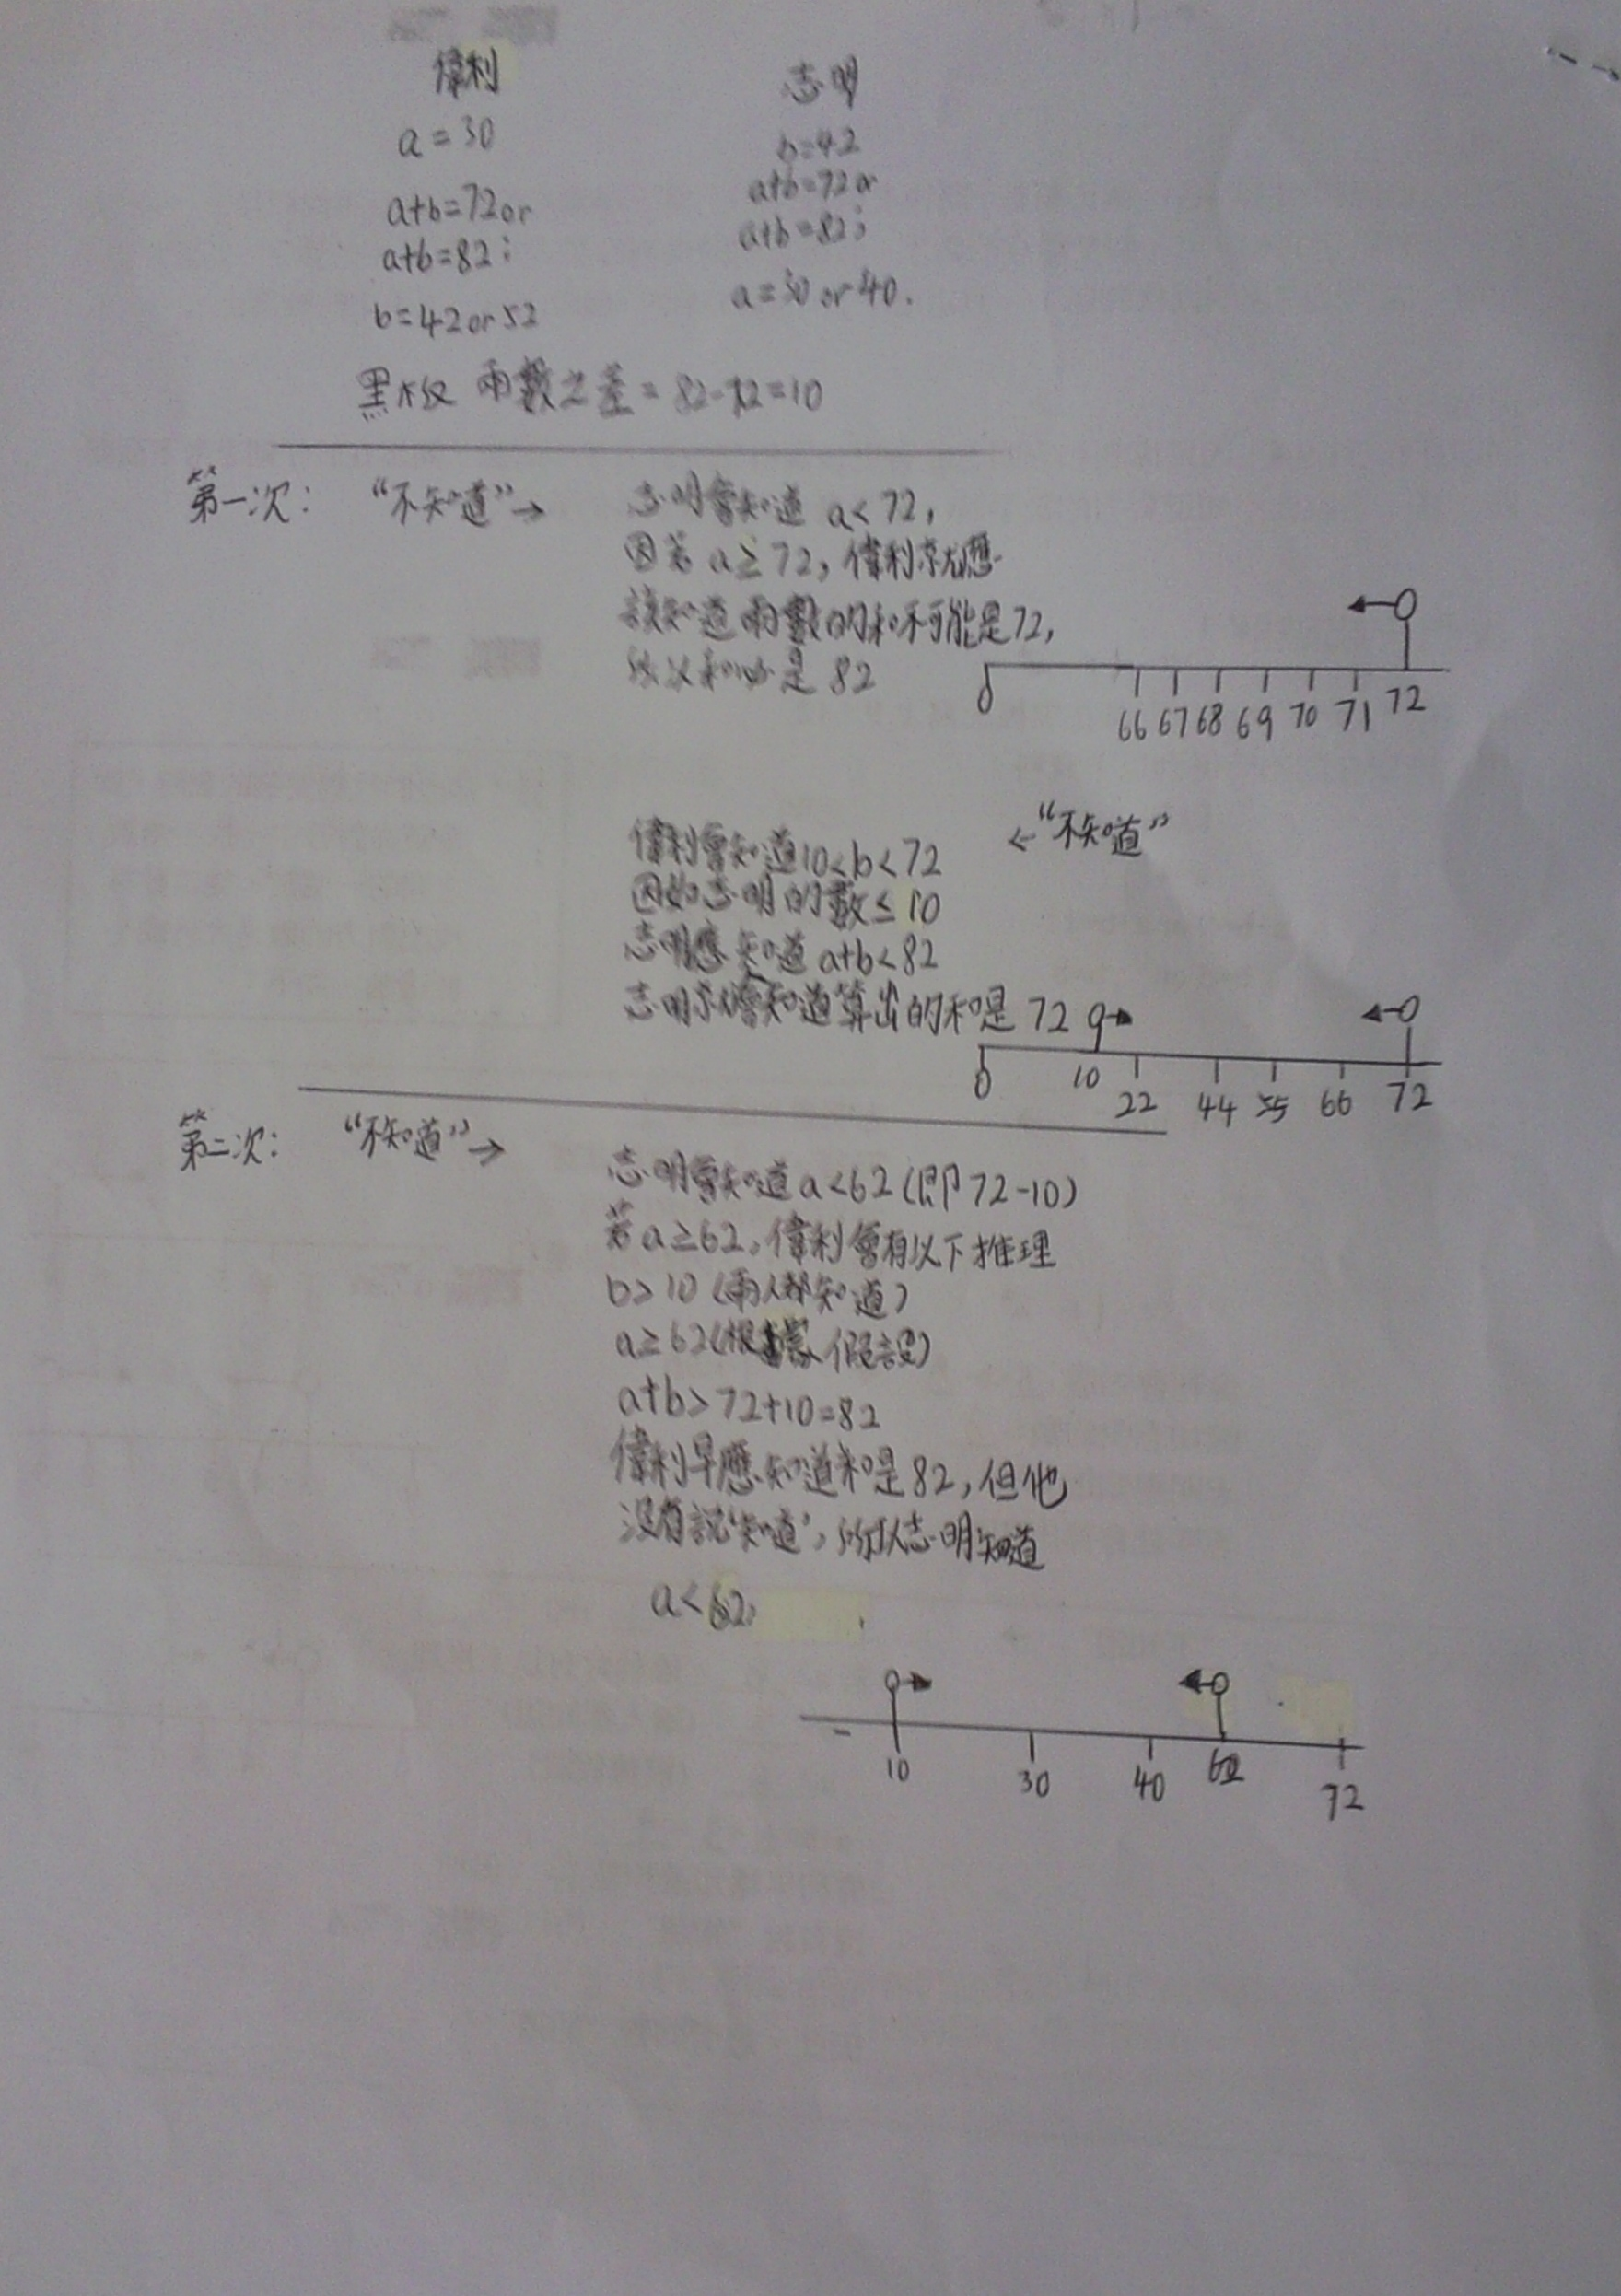 偉利
志明
a=30
b=42
a+b=72or
a+b=72or
a+b=82;
a+b=82;
b=42or52
a=30 or 40.
黑板 兩數之差=82-72=10
第一次: “不知道”→ 志明會知道 a<72,
因若 a≥72, 偉利就應
該知道兩數的和不可能是72,
所以和必是 82
0 66 67 68 69 70 71 72
偉利會知道10<b<72 ←“不知道”
因如志明的數≤10
志明應知道 a+b<82
志明就會知道算出的和是 72
0 10 22 44 55 66 72
第二次: “不知道”→
志明會知道a<62(即72-10)
若a≥62,偉利會有以下推理
b>10(兩人都知道)
a≥62(根據假設)
a+b>72+10=82
偉利早應知道和是82,但他
沒有說‘知道’,所以志明知道
a<62,
10 30 40 62 72